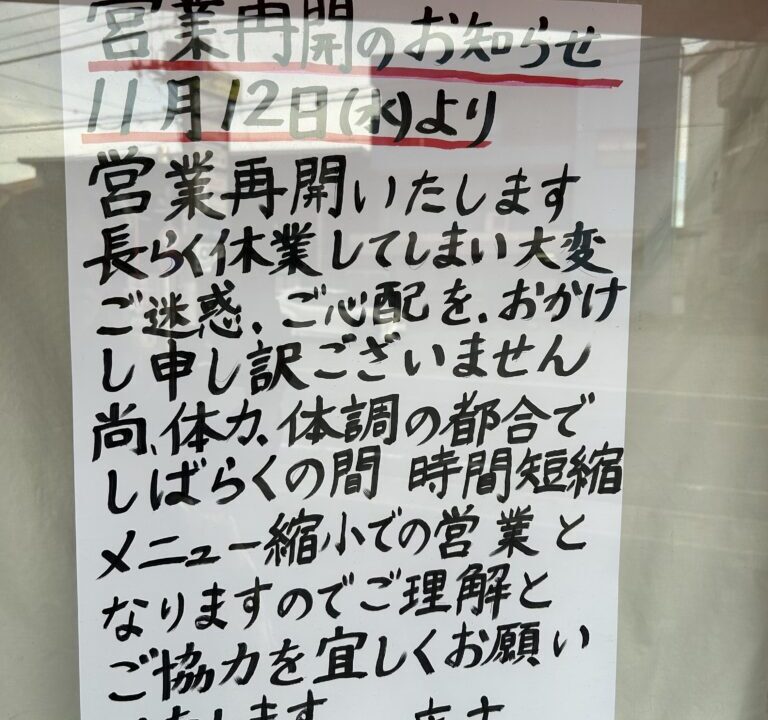 営業再開のお知らせ
11月12日(水)より
営業再開いたします
長らく休業してしまい大変
ご迷惑、ご心配を、おかけ
し申し訳ございません
尚、体力、体調の都合で
しばらくの間 時間短縮
メニュー縮小での営業と
なりますのでご理解と
ご協力を宜しくお願い
たします